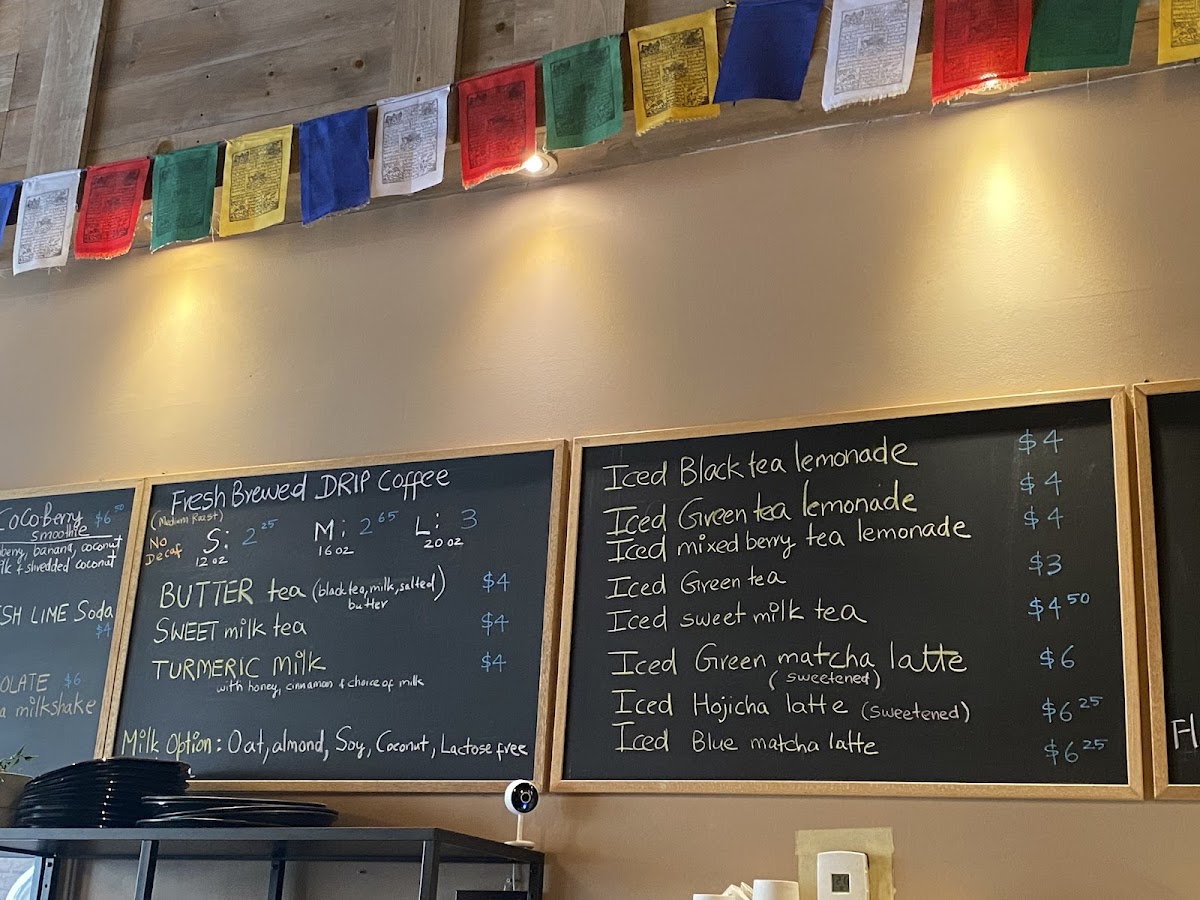 CoCo-Berry $6.50
smoothie
berry, banana, coconut
& shredded coconut
LIME Soda
$4
$6
milkshake
Fresh Brewed DRIP Coffee
(Medium Roast)
No
Decaf
S: 2 25 M: 2 65 L: 3
12 oz 16 oz 20 oz
BUTTER tea (black tea, milk, salted butter) $4
SWEET milk tea $4
TURMERIC milk $4
with honey, cinnamon & choice of milk
Milk Option: Oat, almond, Soy, Coconut, Lactose free
Iced Black tea lemonade $4
Iced Green tea lemonade $4
Iced mixed berry tea lemonade $4
Iced Green tea $3
Iced sweet milk tea $4 50
Iced Green matcha latte $6
(sweetened)
Iced Hojicha latte (sweetened) $6 25
Iced Blue matcha latte $6 25